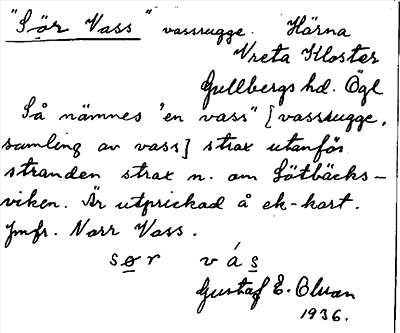 "Sör Vass" vassrugge. Härna
Vreta Kloster
Gullbergs hd. Ögl
Så nämnes "en vass" [vassrugge,
samling av vass] strax utanför
stranden strax n. om Sötbäcks-
viken. Är utprickad å ek-kart.
Jmfr. Norr Vass.
sør vás
Gustaf E. Olsson
1936.